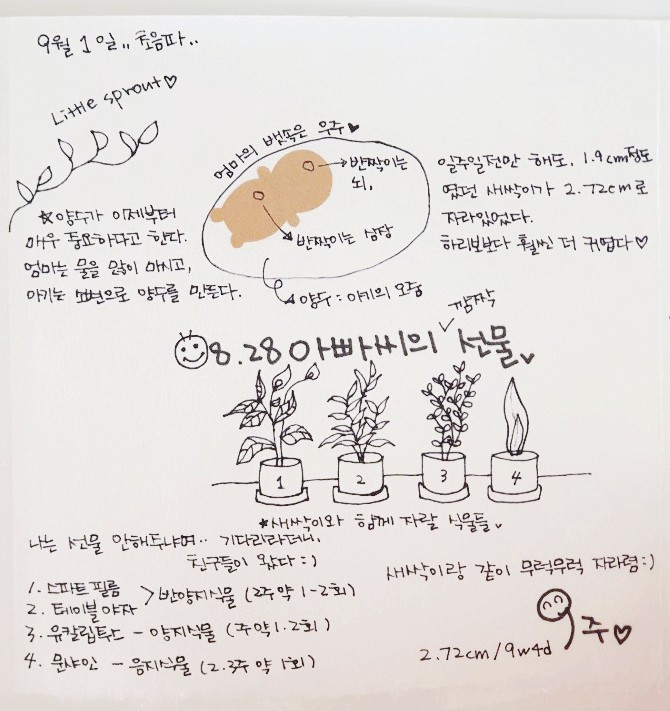 9월 1일.. 초음파..
Little sprout♡
엄마의 뱃속은 우주♥
→반짝이는
뇌,
반짝이는 심장
양수 : 아기의 오줌
일주일전만 해도, 1.9cm정도
였던 새싹이가 2.72cm로
자라있었다.
하리보보다 훨씬 더 귀엽다♡
★양수가 이제부터
매우 중요하다고 한다.
엄마는 물을 많이 마시고,
아기는 소변으로 양수를 만든다.
깜짝
8.28 아빠씨의 선물
1
2
3
4
★새싹이와 함께 자랄 식물들
나는 선물 안해주냐며.. 기다리라더니,
친구들이 왔다 :)
1. 스파트필름
2. 테이블야자
>반양지식물 (2주 약 1-2회)
3. 유칼립투스 - 양지식물 (주 약 1.2회)
4. 문샤인 - 음지식물 (2.3주 약 1회)
새싹이랑 같이 무럭무럭 자라렴 :)
9주♡
2.72cm/9w4d